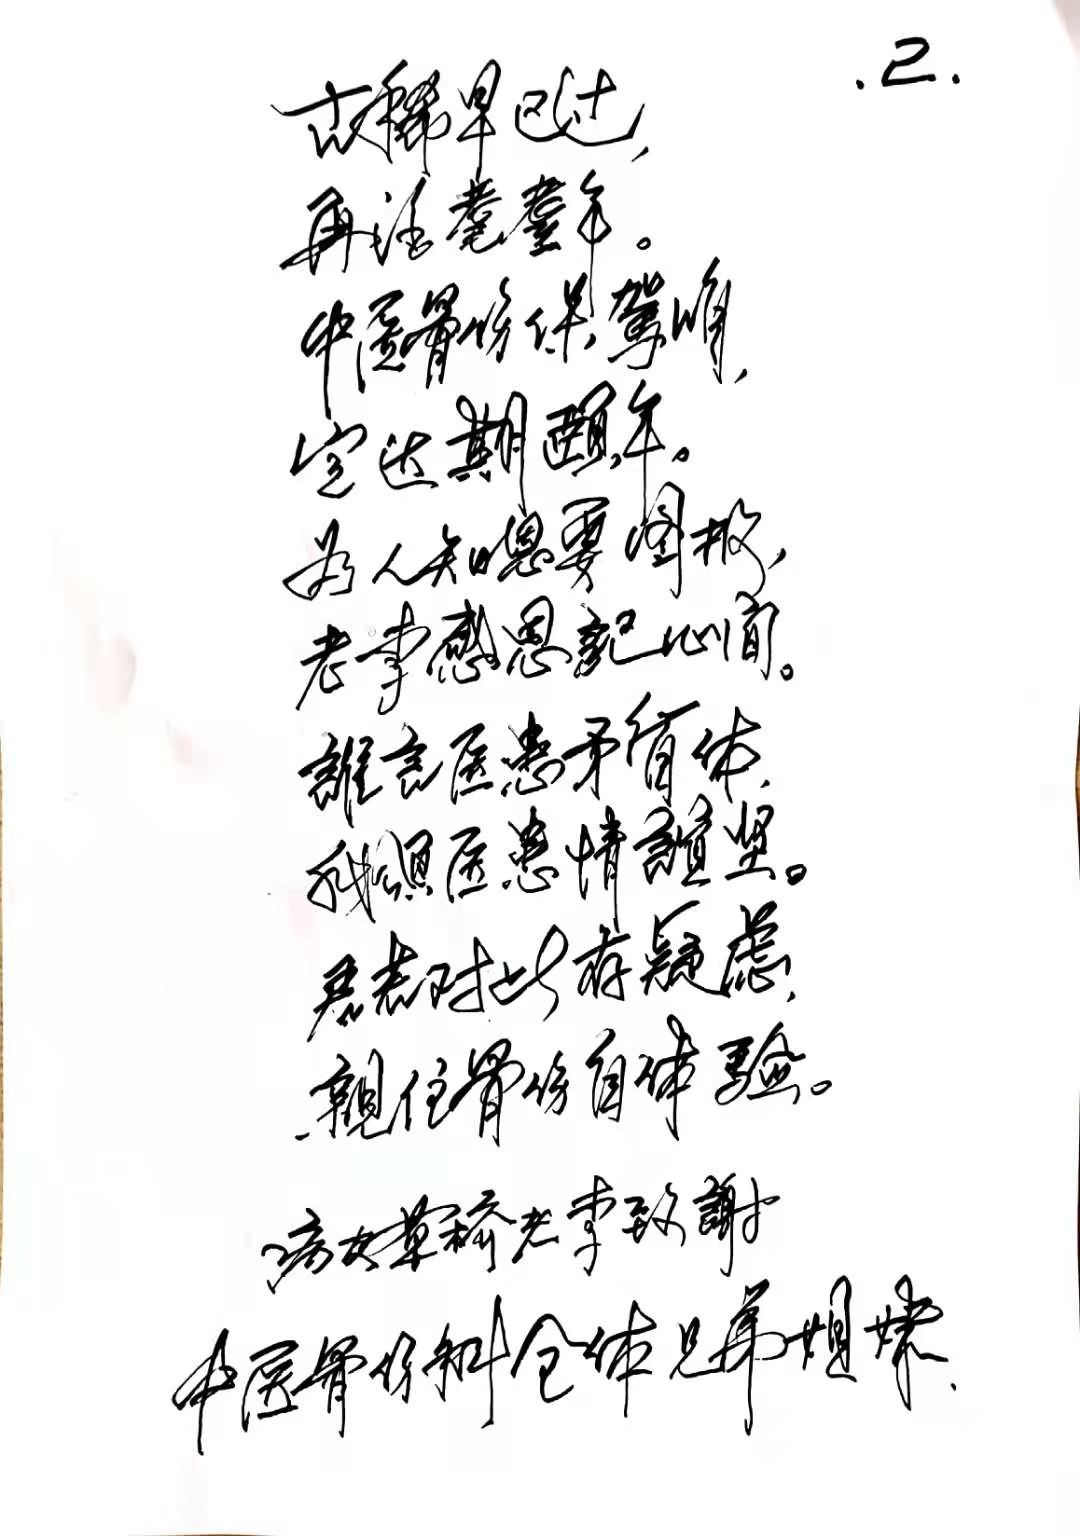 .2.
古稀早已过,
再活耄耋年。
中医骨伤保驾
定达期颐年。
为人知恩要图报,
老李感恩記心间。
誰言医患矛盾体,
我颂医患情誼坚。
君若对此存疑虑,
親住骨伤自体验。
病友草稿老李致謝
中医骨伤科全体兄弟姐妹.